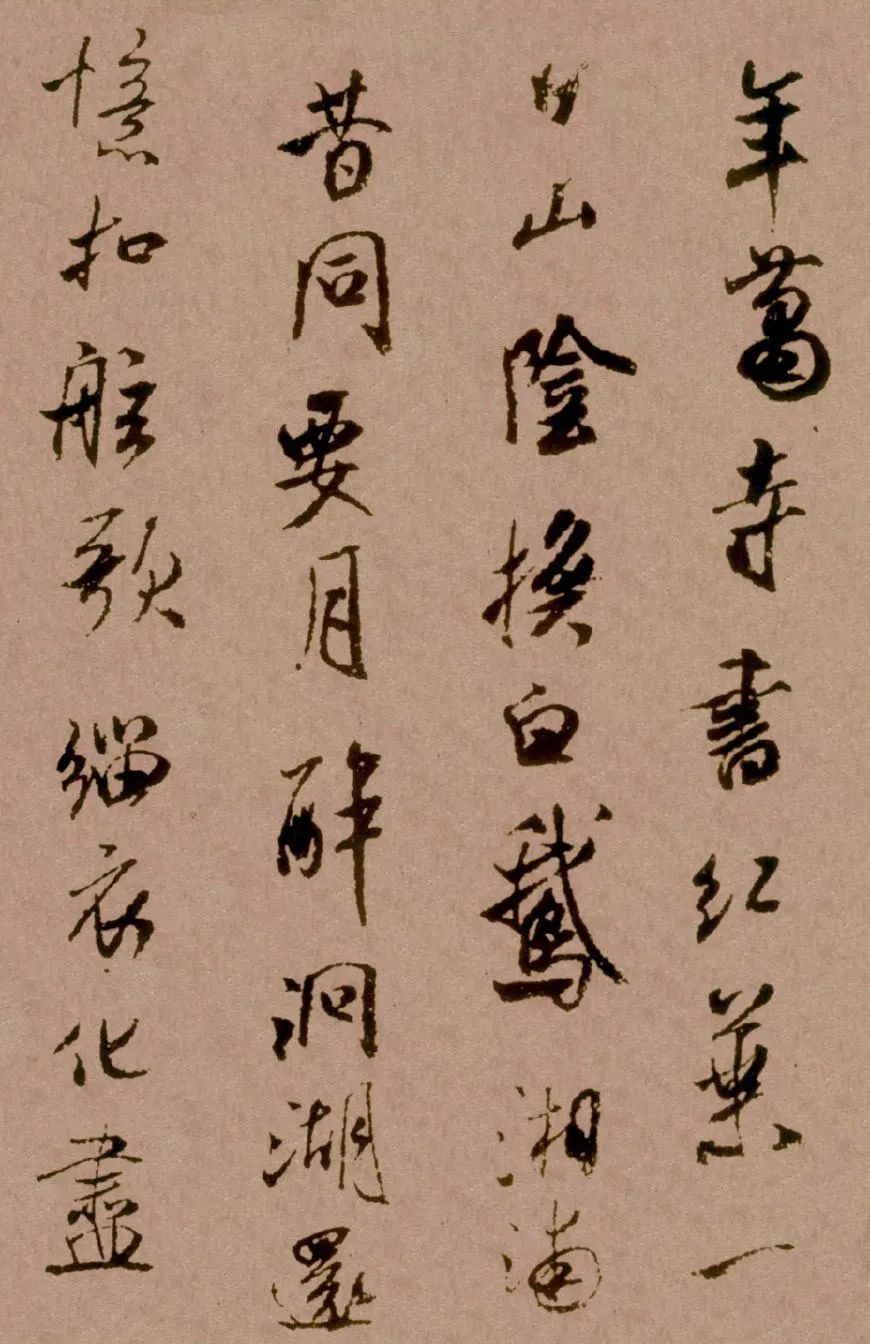 年萬寺書紅葉一
日山陰換白鵝湘浦
昔同要月醉洞湖還
憶扣舷歌緇衣化盡